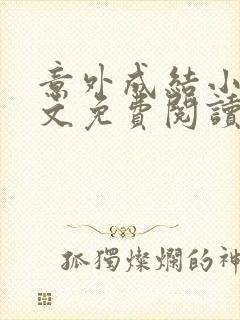 意外成結小
文免費閱讀
孤獨燦爛的神